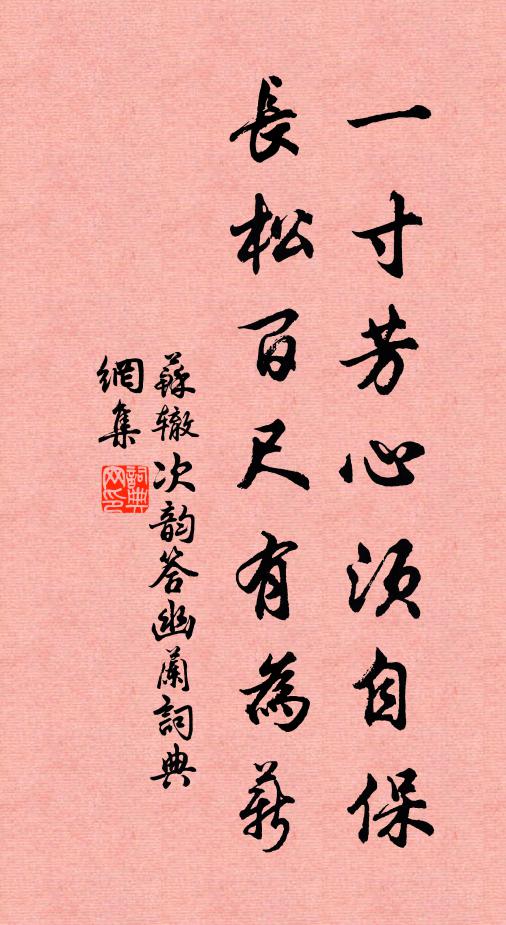 一寸芳心須自保
長松百尺有為薪
蘇轍次韵答幽蘭詞典
網集
詞典網印